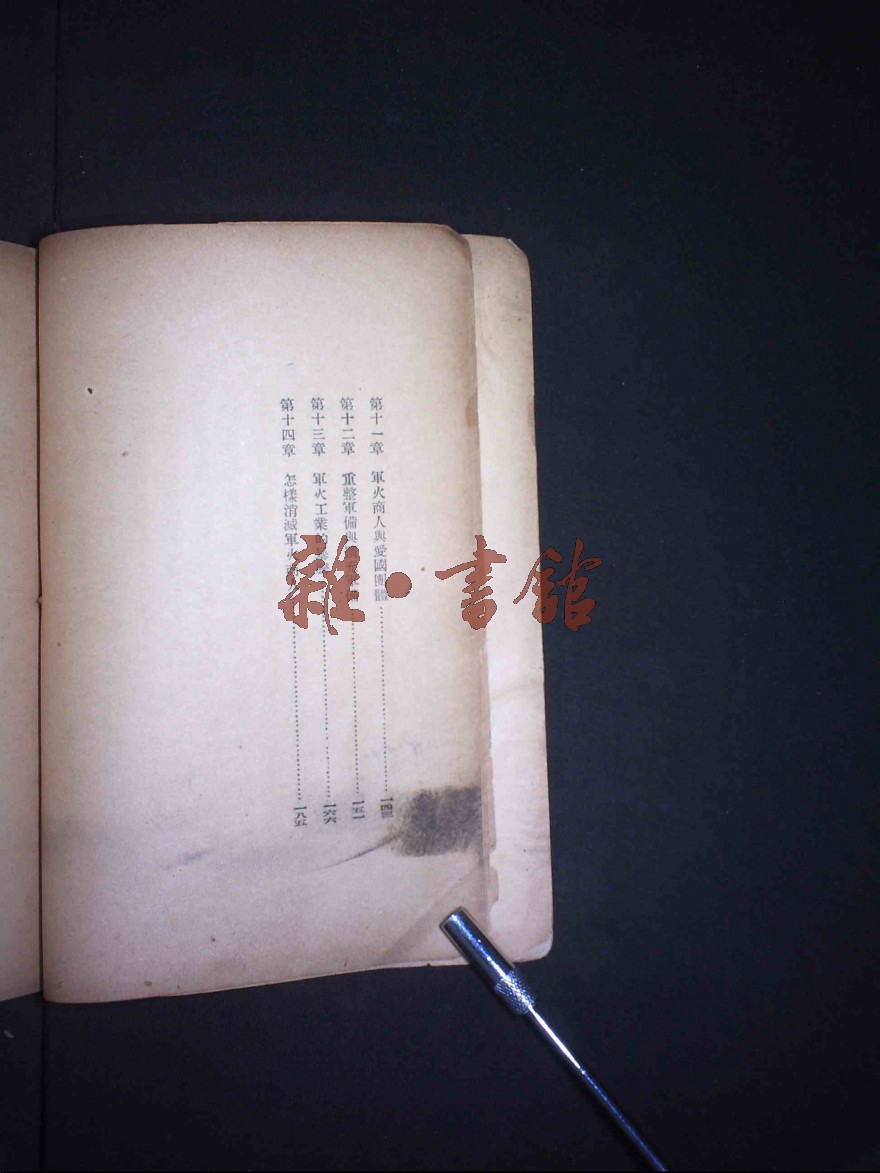 第十一章 軍火商人與愛國團體 一四三
第十二章 重整軍備與 一五一
第十三章 軍火工業的 一六六
第十四章 怎樣消滅軍火商 一八五
雜·書館